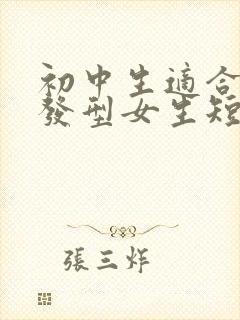 初中生適合
發型女生短
張三炸